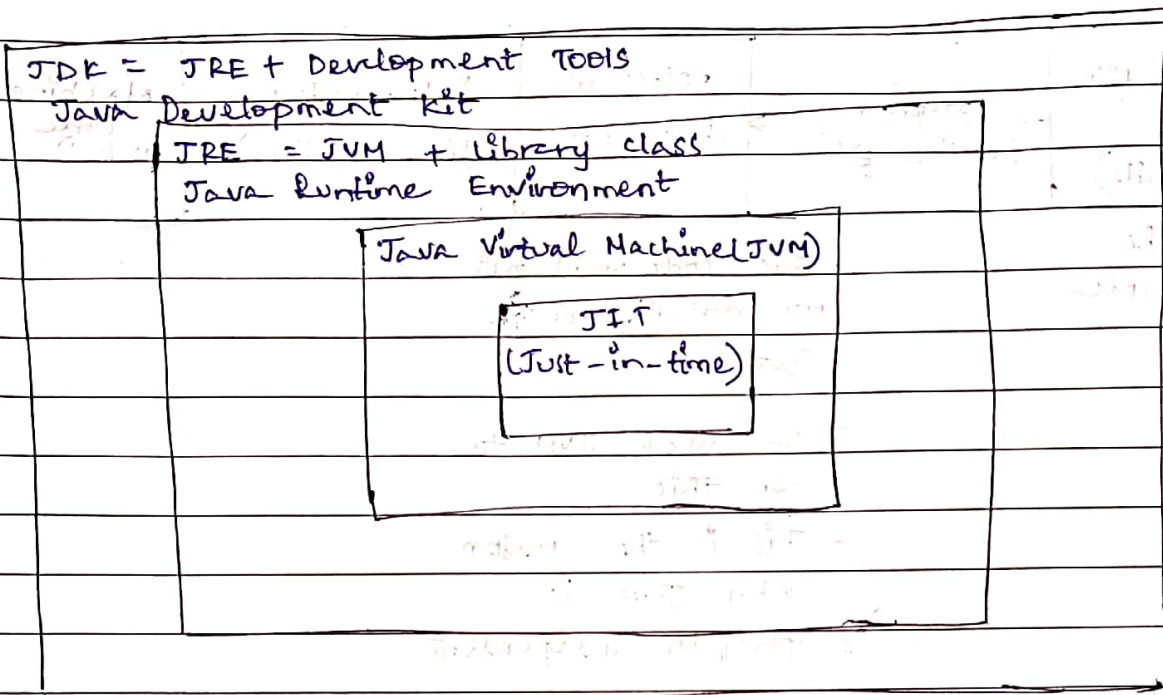 JDK = JRE + Development TOOLS
Java Development kit
JRE = JVM + Library class
Java Runtime Environment
Java Virtual Machine(JVM)
JI.T
(Just-in-time)